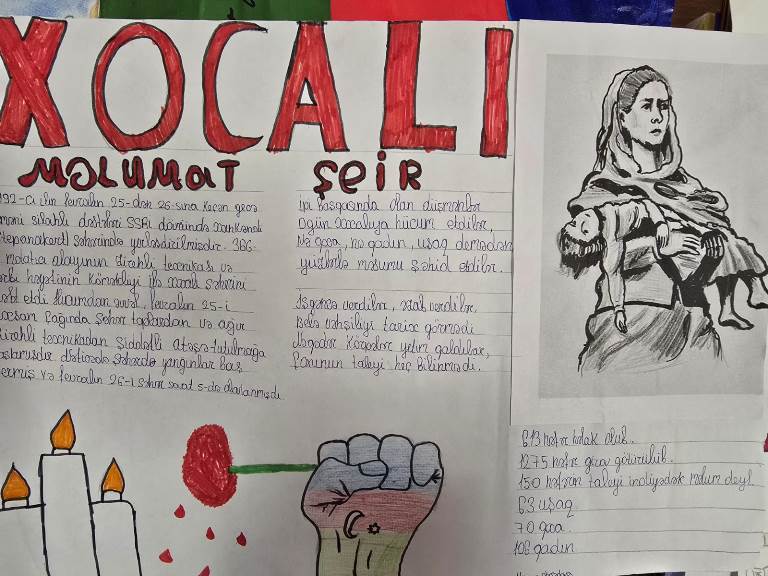 XOCALI
MƏLUMAT
1992-ci ilin fevralın 25-dən 26-sına keçən gecə
silahlı dəstələri SSRİ dövründə Xankəndi
(Stepanakert) şəhərində yerləşdirilmişdir. 366-
alayının zirehli texnikası və
heyətinin köməkliyi ilə Xocalı şəhərini
etdi. Hücumdan əvvəl, fevralın 25-i
axşam çağında şəhər toplardan və ağır
zirehli texnikadan şiddətli atəşə tutulmağa
başlamışdır. Nəticədə şəhərdə yanğınlar baş
vermiş və fevralın 26-ı səhər saat 5-də
ŞEİR
olan düşmənlər
ogün Xocalıya hücum etdilər,
Nə qoca, nə qadın, uşaq demədən
yüzlərlə məsumu şəhid etdilər.
İşgəncə verdilər, əzab verdilər,
Belə vəhşiliyi tarix görmədi
Nəqədər körpələr yetim qaldılar,
taleyi heç bilinmədi.
613 nəfər həlak olub.
1275 nəfər girov götürülüb.
150 nəfərin taleyi indiyədək məlum deyl
63 uşaq
70 qoca
106 qadın